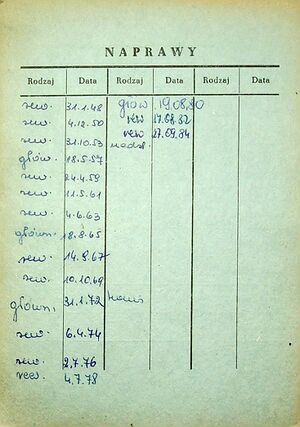 NAPRAWY
Rodzaj Data Rodzaj Data Rodzaj Data
rew. 31.1.48 główn. 19.08.80
rew. 4.12.50 rew 17.08.82
rew. 31.10.53 rew 27.09.84
głów. 18.5.57
rew. 24.4.59
rew. 11.5.61
rew. 4.6.63
główn. 18.8.65
rew. 14.8.67
rew. 10.10.69
główn. 31.1.72
rew. 6.4.74
rew. 2.7.76
rew. 4.7.78